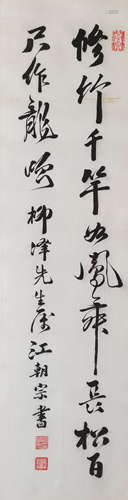 修竹千竿如鳳舞長松百
尺作龍吟 柳先生属 江朝宗書